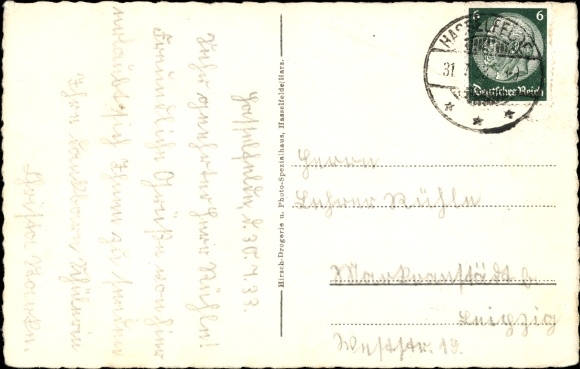 Hasselfelde, d. 30.7.33.
Sehr geehrter Herr Rühle!
Freundliche Grüße von hier
erlaubt sich Ihnen zu senden
Ihre dankbare Schülerin
Christa
Hirsch-Drogerie u. Photo-Spezialhaus, Hasselfelde/Harz.
HASSELFELDE
31.
6 6
Deutsches Reich
Herrn
Lehrer Rühle
Markranstädt b.
Leipzig
Weststr. 19.